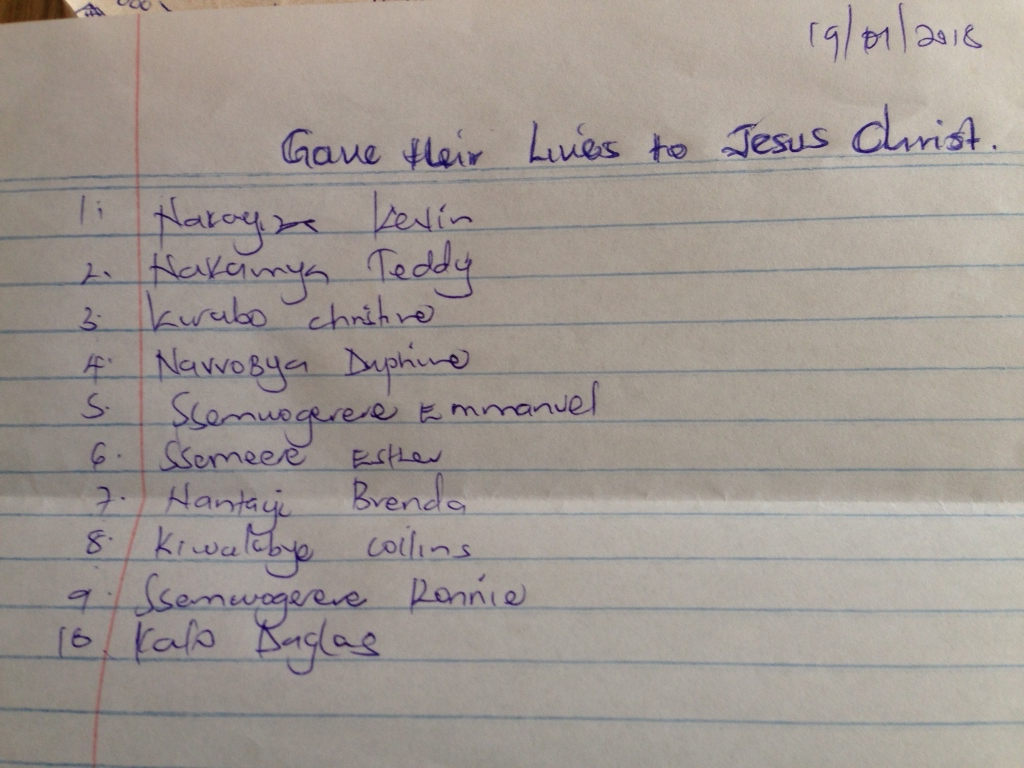 19/01/2018
Gave their Lives to Jesus Christ.
1. Kevin
2. Nakamya Teddy
3. Kwabo Christine
4. Navvobya Daphine
5. Ssemwogerere Emmanuel
6. Ssemeere Esther
7. Nantayi Brenda
8. Kiwalabye Collins
9. Ssemwogerere Ronnie
10. Kato Daglas